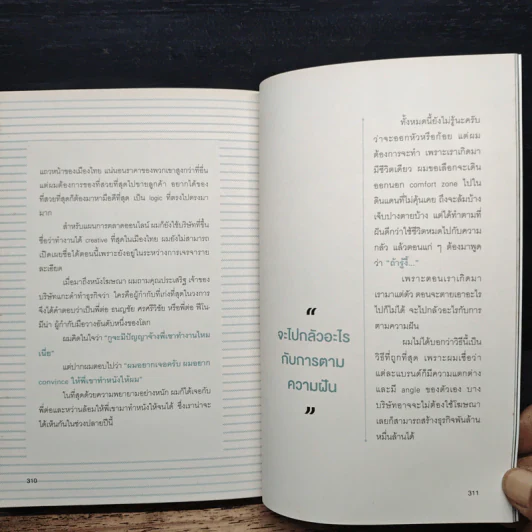 แถวหน้าของเมืองไทย แน่นอนราคาของพวกเขาสูงกว่าที่อื่น
แต่ผมต้องการของที่สวยที่สุดไปขายลูกค้า อยากได้ของ
ที่สวยที่สุดก็ต้องมาหามือดีที่สุด เป็น logic ที่ตรงไปตรงมา
มาก
สำหรับแผนการตลาดออนไลน์ ผมก็ยังใช้บริษัทที่ขึ้น
ชื่อว่าทำงานได้ creative ที่สุดในเมืองไทย ผมยังไม่สามารถ
เปิดเผยชื่อได้ตอนนี้เพราะยังอยู่ในระหว่างการเจรจาราย
ละเอียด
เมื่อมาถึงหนังโฆษณา ผมถามคุณประเสริฐ เจ้าของ
บริษัทแกะดำทำธุรกิจว่า ใครคือผู้กำกับที่เก่งที่สุดในวงการ
จึงได้คำตอบว่าเป็นพี่ต่อ ธนญชัย ศรศรีวิชัย หรือพี่ต่อ ฟีโน
มีน่า ผู้กำกับมือวางอันดับหนึ่งของโลก
ผมคิดในใจว่า "กูจะมีปัญญาจ้างพี่เขาทำงานไหม
เนี่ย"
แต่ปากผมตอบไปว่า "ผมอยากเจอครับ ผมอยาก
convince ให้พี่เขาทำหนังให้ผม"
ในที่สุดด้วยความพยายามอย่างหนัก ผมก็ได้เจอกับ
พี่ต่อและหว่านล้อมให้พี่เขามาทำหนังให้จนได้ ซึ่งเราน่าจะ
ได้เห็นกันในช่วงปลายปีนี้
310
“
จะไปกลัวอะไร
กับการตาม
ความฝัน
”
ทั้งหมดนี้ยังไม่รู้นะครับ
ว่าจะออกหัวหรือก้อย แต่ผม
ต้องการจะทำ เพราะเราเกิดมา
มีชีวิตเดียว ผมขอเลือกจะเดิน
ออกนอก comfort zone ไปใน
ดินแดนที่ไม่คุ้นเคย ถึงจะล้มบ้าง
เจ็บปางตายบ้าง แต่ได้ทำตามที่
ฝันดีกว่าใช้ชีวิตหมดไปกับความ
กลัว แล้วตอนแก่ ๆ ต้องมาพูด
ว่า "ถ้ารู้งี้..."
เพราะตอนเราเกิดมา
เรามาแต่ตัว ตอนจะตายเอาอะไร
ไปก็ไม่ได้ จะไปกลัวอะไรกับการ
ตามความฝัน
ผมไม่ได้บอกว่าวิธีนี้เป็น
วิธีที่ถูกที่สุด เพราะผมเชื่อว่า
แต่ละแบรนด์ก็มีความแตกต่าง
และมี angle ของตัวเอง บาง
บริษัทอาจจะไม่ต้องใช้โฆษณา
เลยก็สามารถสร้างธุรกิจพันล้าน
หมื่นล้านได้
311